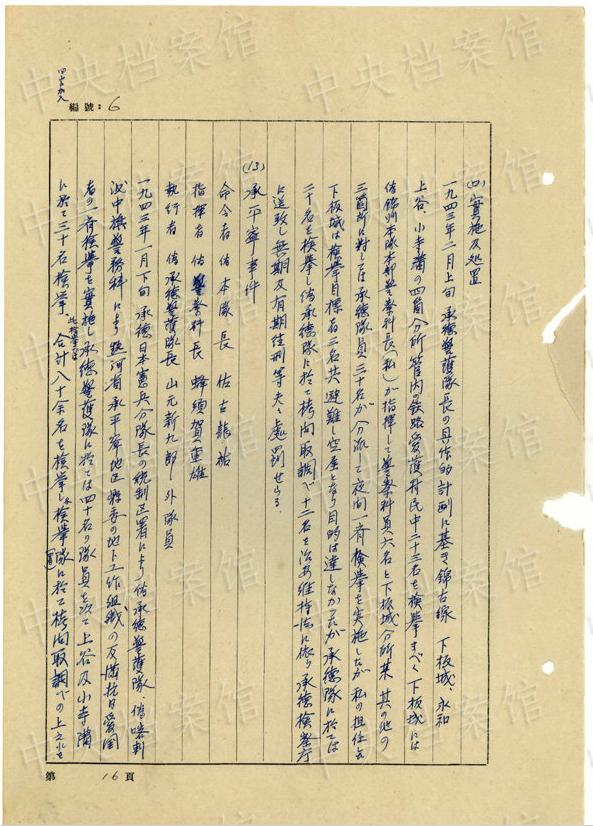 編號：6
(四)實施及処置
一九四三年二月上旬 承德警護隊長の具体的計劃に基き錦古線 下板城、永和
上谷、小寺溝の四箇分所管内の鉄路愛護村民中二十三名を検挙すべく下板城には
偽錦州本隊本部警務科長(私)が指揮して警務科員六名と下板城分所某 其の他の
三箇所に対しては承德隊員三十名が分派して夜間一斉検挙を実施したが私の担任した
下板城は検挙目標者三名共避難し空屋となり目的は達しなかったが承德隊に於ては
二十名を検挙し偽承德隊に於て拷問取調べ十二名を治安維持法に依り承德検察庁
に送致し無期及有期徒刑等夫々処罰せらる.
(13)承平寧事件
命令者 偽本隊長 佐古龍祐
指揮者 偽警務科長 蜂須賀重雄
執行者 偽承德警護隊長 山元新九郎 外隊員
一九四三年一月下旬 承德日本憲兵分隊長の統制区署により偽承德警護隊、偽喀喇
沁中旗警務科により熱河省承平寧地区 の地下工作組織の反満抗日愛国
者の一斉検挙を実施し承德警護隊に於ては四十名の隊員を以て上谷及小寺溝
に於て三十名検挙、合計八十余名を検挙し検挙隊に於て拷問取調べの上之れを
第 16 頁
中央档案馆